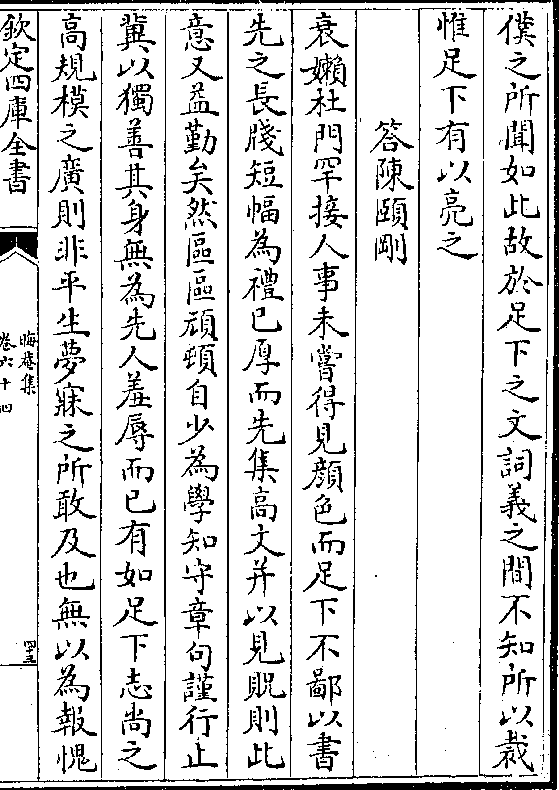 僕之所聞如此故於足下之文詞義之間不知所以裁
惟足下有以亮之
答陳頤剛
衰嬾杜門罕接人事未嘗得見顔色而足下不鄙以書
先之長牋短幅為禮已厚而先集高文并以見貺則此
意又益勤矣然區區頑頓自少為學知守章句謹行止
冀以獨善其身無為先人羞辱而已有如足下志尚之
高規模之廣則非平生夢寐之所敢及也無以為報愧
欽定四庫全書
晦庵集
卷六十四
四十三